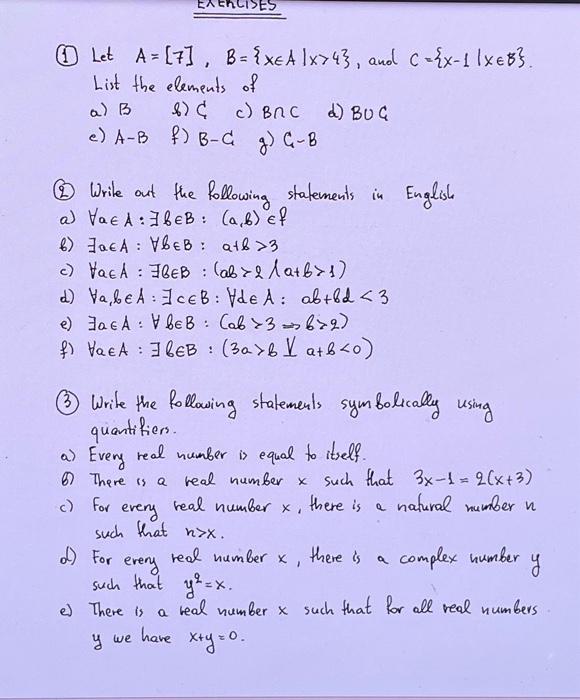 EXERCISES
① Let A = [7], B = {x∈A | x>4}, and C = {x-1 | x∈B}.
List the elements of
a) B b) C c) B∩C d) B∪C
e) A-B f) B-C g) C-B
② Write out the following statements in English
a) ∀a∈A : ∃b∈B : (a,b) ∈ f
b) ∃a∈A : ∀b∈B : a+b >3
c) ∀a∈A : ∃b∈B : (ab>2 ∧ a+b>1)
d) ∀a,b∈A : ∃c∈B : ∀d∈A : ab+bd < 3
e) ∃a∈A : ∀b∈B : (ab>3 ⇒ b>2)
f) ∀a∈A : ∃b∈B : (3a>b ⊻ a+b<0)
③ Write the following statements symbolically using
quantifiers.
a) Every real number is equal to itself.
b) There is a real number x such that 3x-1 = 2(x+3)
c) For every real number x, there is a natural number n
such that n>x.
d) For every real number x, there is a complex number y
such that y²=x.
e) There is a real number x such that for all real numbers
y we have x+y=0.